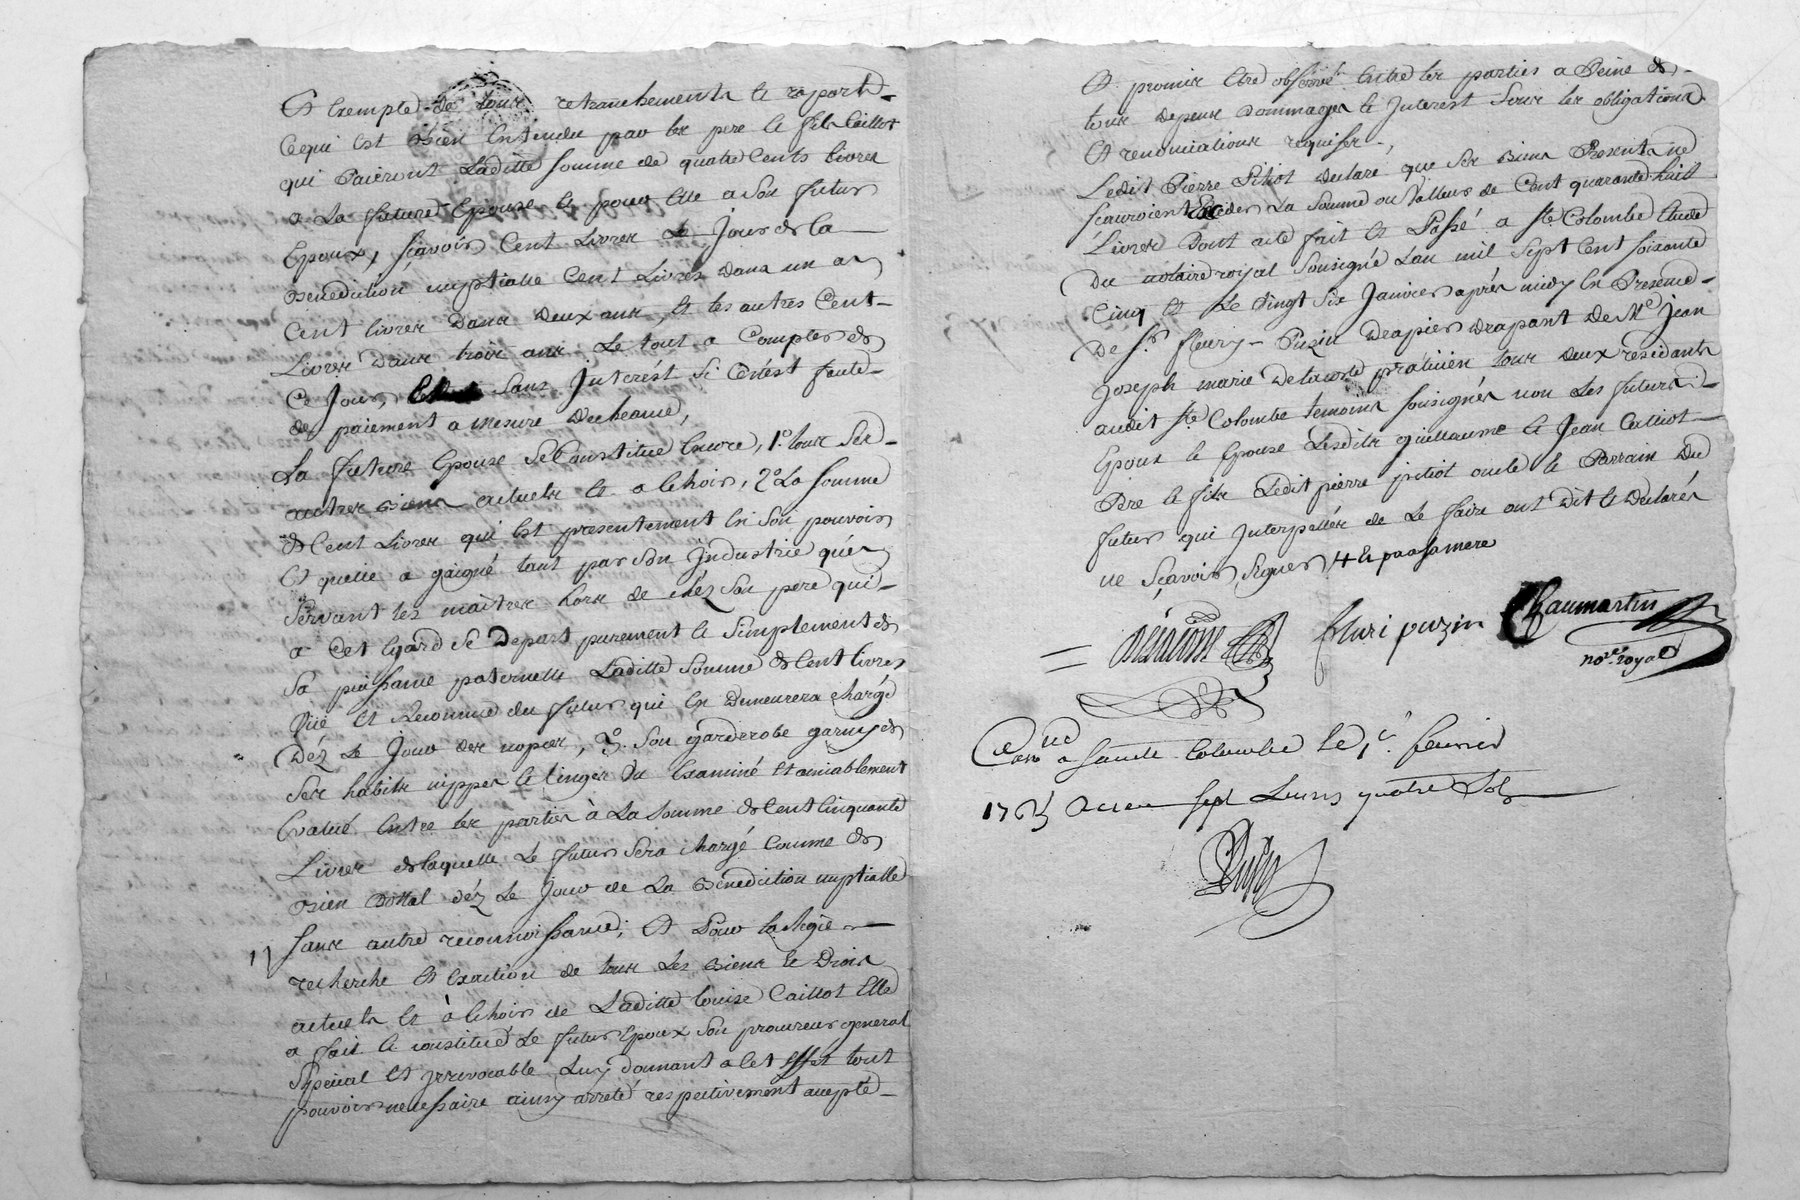 Et Exempte de tous retranchements et raports
Cequi est Bien Entendu par les pere et fils Caillot
qui Paieront Laditte somme de quatre Cents livres
a La future Epouse et pour Elle a Son futur
Epoux, sçavoir Cent Livres Le Jour de la
Benediction nuptialle Cent Livres dans un an
Cent livres dans deux ans, et les autres Cent
Livres dans trois ans Le tout a Compter de
Ce Jour, Sans Interest si Cen'est faute
de paiement a mesure decheance,
La future Epouse Se Constitue Encore, 1.° tous Ses
autres Biens actuels et a Echoir, 2.° La somme
de Cent Livres qui Est presentement En Son pouvoir
Et quelle a gaigné tant par Son Industrie qu'en
Servant les maitres hors de chez Son pere qui
a Cet Egard Se Depart purement et Simplement de
Sa puissance paternelle Laditte Somme de Cent livres
Vüe Et Reconnue du futur qui En Demeurera chargé
Déz Le Jour des nopces, 3.° Son garderobe garny de
Ses habits nippes et linges Vu Examiné Et amiablement
Evalué Entre les parties à La Somme de Cent Cinquante
Livres de laquelle Le futur Sera chargé Comme de
Bien Dottal déz Le Jour de La Benediction nuptialle
sans autre reconnoissance; Et Pour La Regie
recherche Et Exaction de tous Les Biens et Droits
actuels Et à Echoir de Laditte Louise Caillot Elle
a fait et constitué Le futur Epoux Son procureur general
Special Et Irrevocable Luy donnant a Cet Effet tout
pouvoir necessaire ainsy arreté respectivement accepté
Et promis Etre observé Entre les parties a Peine de
tous depens dommages et Interest Sous les obligations
Et renonciations requises,
Ledit Pierre Pitiot declare que Ses Biens Presents ne
sçauroient Exceder La Somme ou Valleur de Cent quarante huit
Livres Dont acte fait Et Passé a Ste Colombe Etude
Du notaire royal Sousigné Lan mil Sept Cent soixante
Cinq et Le Vingt Six Janvier après midy En Presence
De Sr fleury Puzin Drapier drapant De Me Jean
Joseph marie Delacoste praticien tous deux residants
audit Ste Colombe temoins sousignés non Les futurs
Epoux et Epouse Lesdits guillaume et Jean Caillot
Pere et fils Ledit pierre pitiot oncle et Parrain Du
futur qui Interpellés de Le faire ont Dit et Declarés
ne Sçavoir Signer
Delacoste fleuri puzin Chaumartin
nore royal
Conné a Sainte Colombe le 1er fevrier
1765 Receu sept Livres quatre Sols